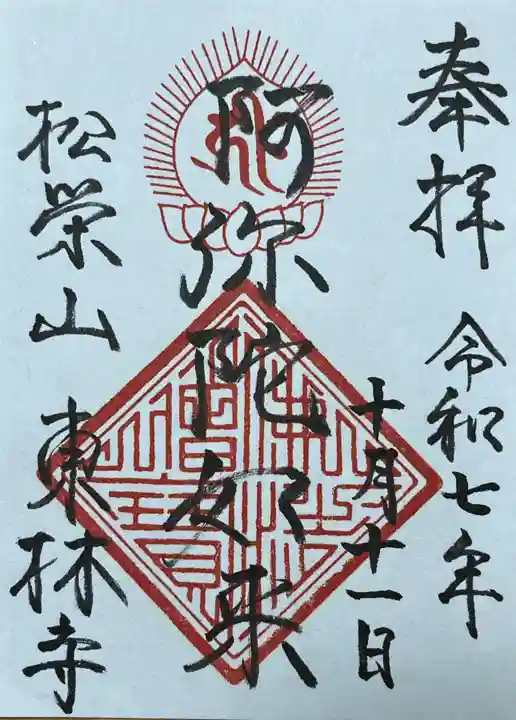 奉拝
令和七年
十月十一日
阿弥陀如来
松栄山
東林寺